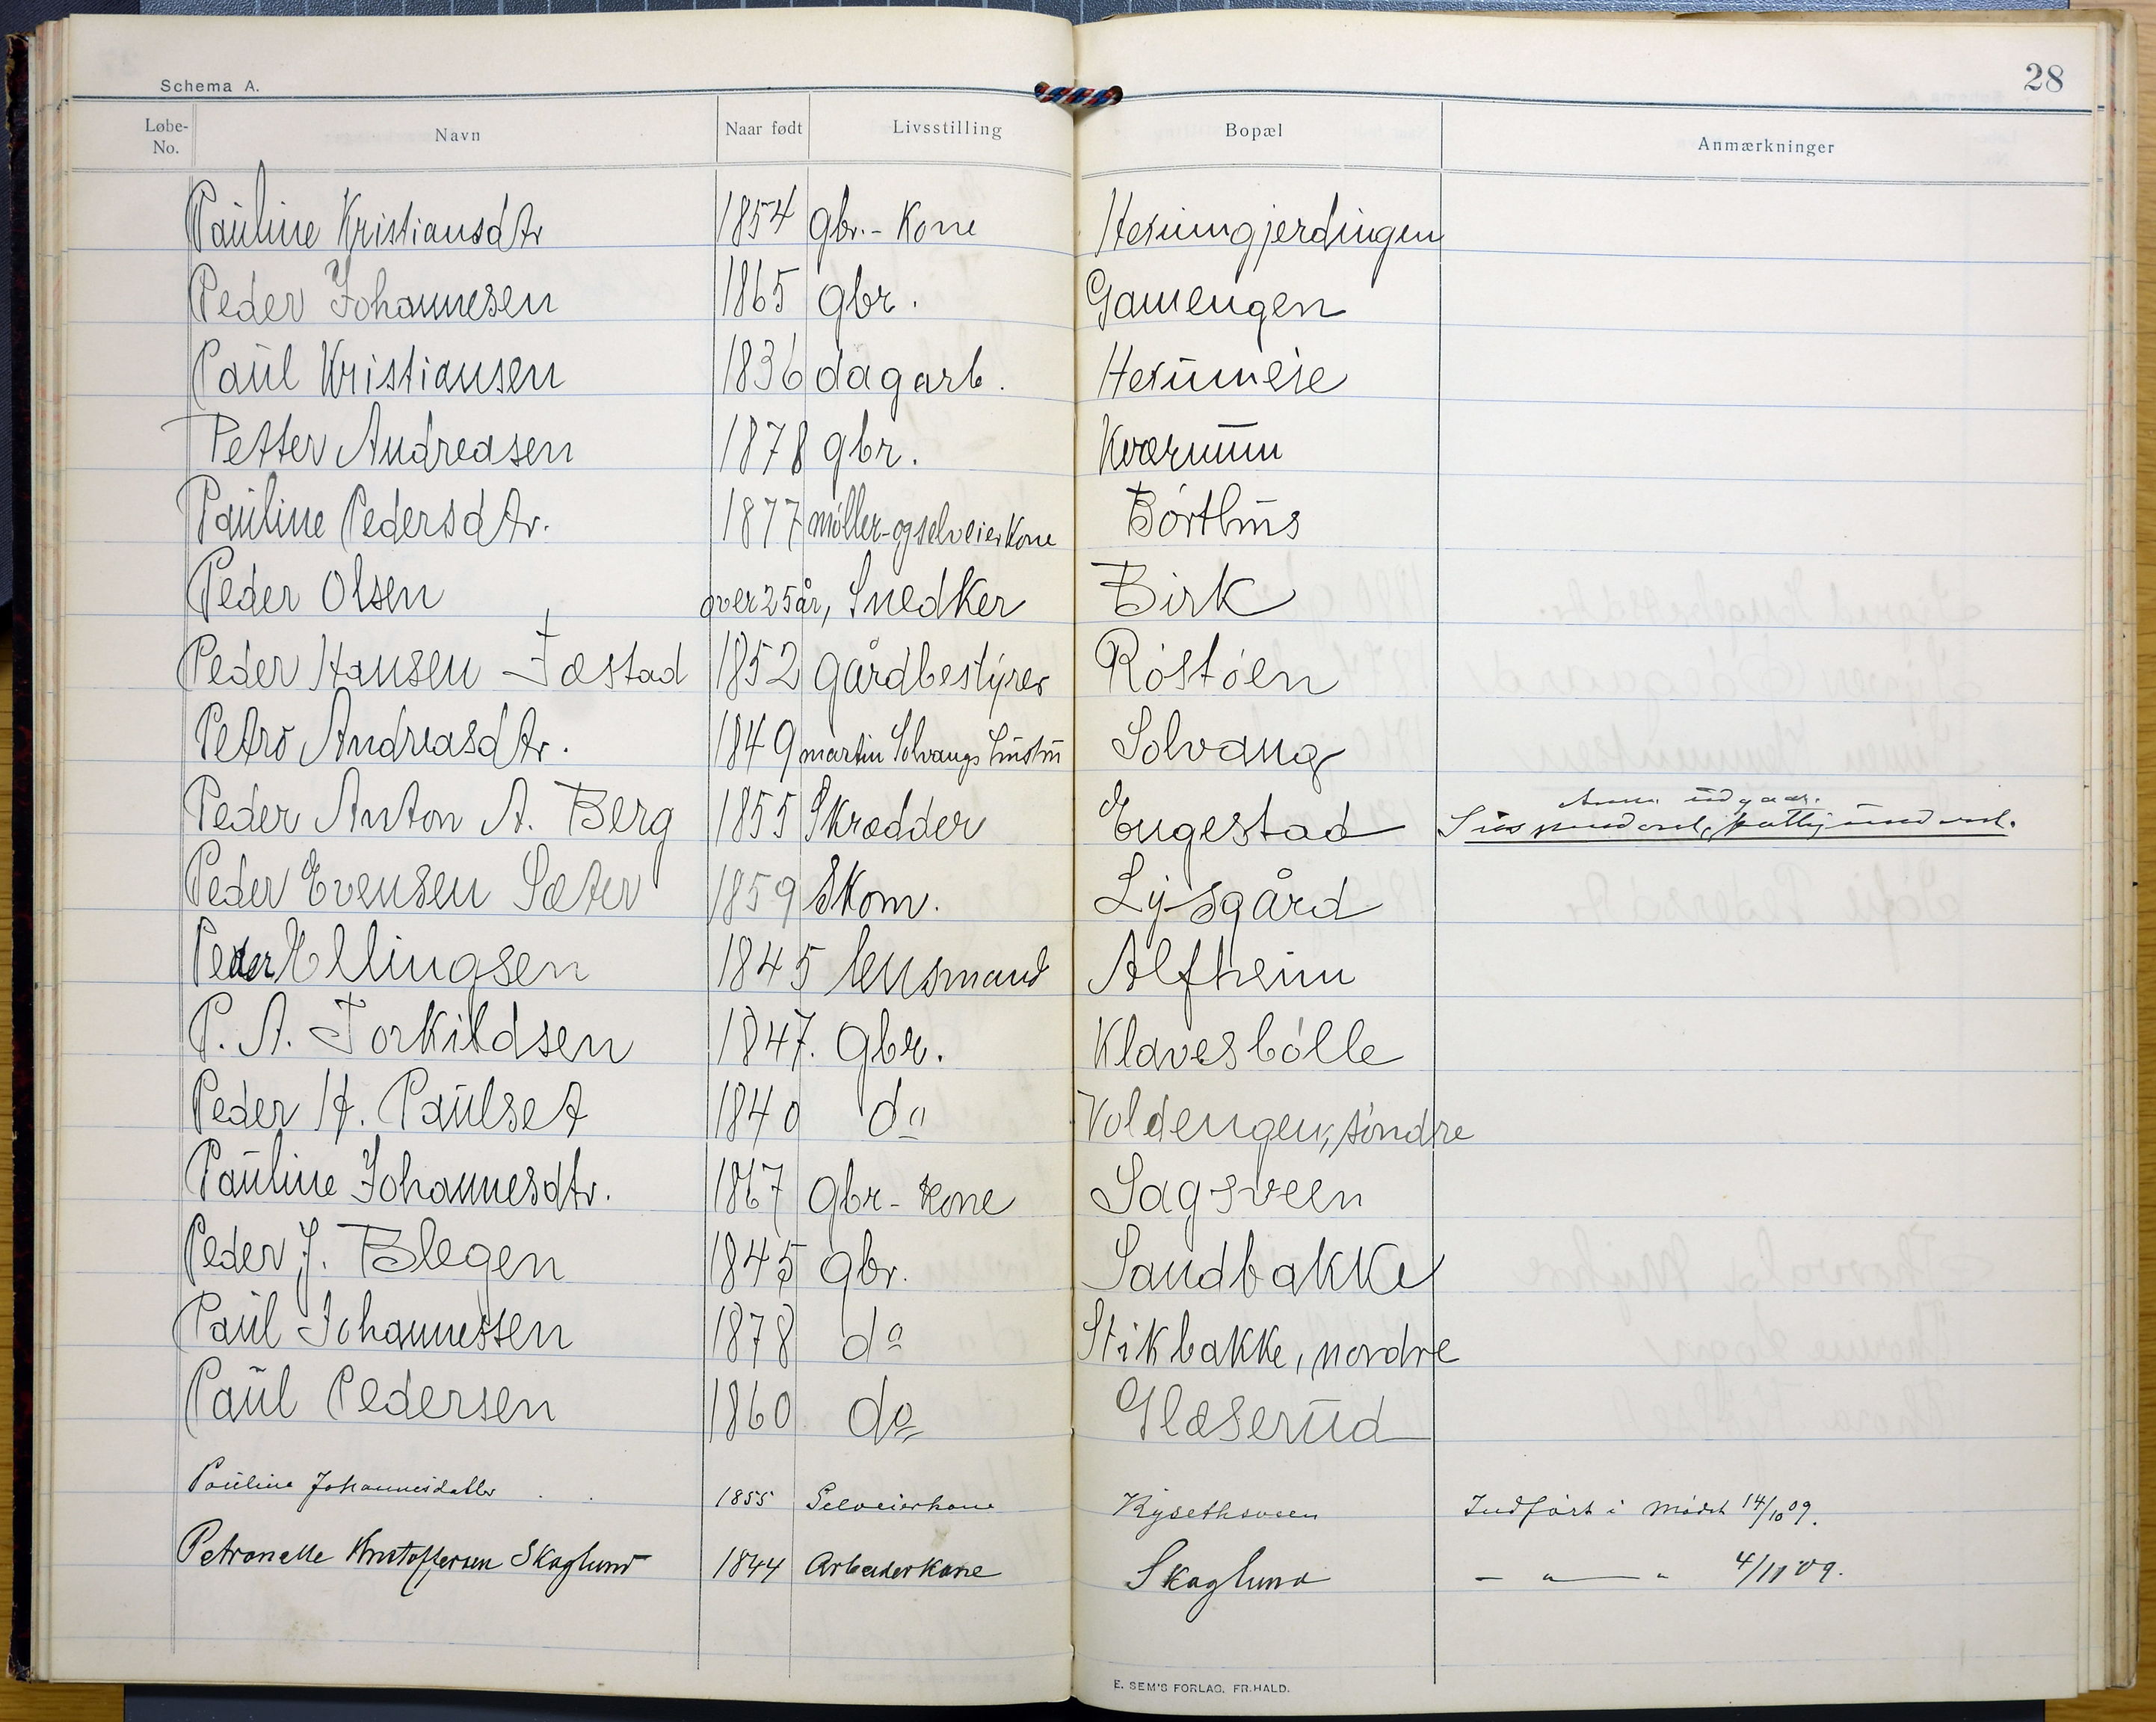 Schema A.
28
Løbe-No. Navn Naar født Livsstilling Bopæl Anmærkninger
Pauline Kristiansdtr 1854 gbr.-Kone
Peder Johannesen 1865 gbr. Gamengen
Paul Kristiansen 1836 dagarb.
Petter Andreasen 1878 gbr. Kværnum
Pauline Pedersdtr. 1877 møller-og selveierkone Børthus
Peder Olsen over 25 år, Snedker Birk
Peder Hansen Jæstad 1852 gårdbestyrer Røstøen
Petro Andreasdtr. 1849 martin Solvangs hustru Solvang
Anm. udgaar.
Peder Anton A. Berg 1855 Skrædder Engestad Suspenderet, fattigunderst.
Peder Evensen Sæter 1859 Skom. Lysgård
Peder Ellingsen 1845 lensmand Alfheim
P. A. Torkildsen 1847. gbr. Klavesbølle
Peder H. Paulset 1840 do Voldengen, søndre
Pauline Johannesdtr. 1867 gbr-kone Sagsveen
Peder J. Blegen 1845 gbr. Sandbakke
Paul Johannessen 1878 do Stikbakke, nordre
Paul Pedersen 1860 do Glæserud
Pauline Johannesdatter 1855 Selveierkone Rysethsveen Indført i Mødet 14/10 09.
Petronelle Kristoffersen Skaglund 1844 Arbeiderkone Skaglund — " — " 4/11 09.
E. SEM'S FORLAG, FR.HALD.